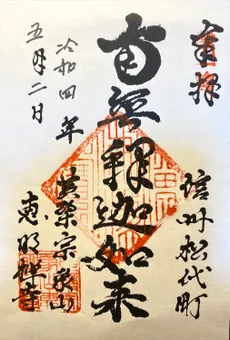 奉拝
信州松代町
南無釋迦如来
令和四年
五月二日
黄檗宗象山
恵明禅寺